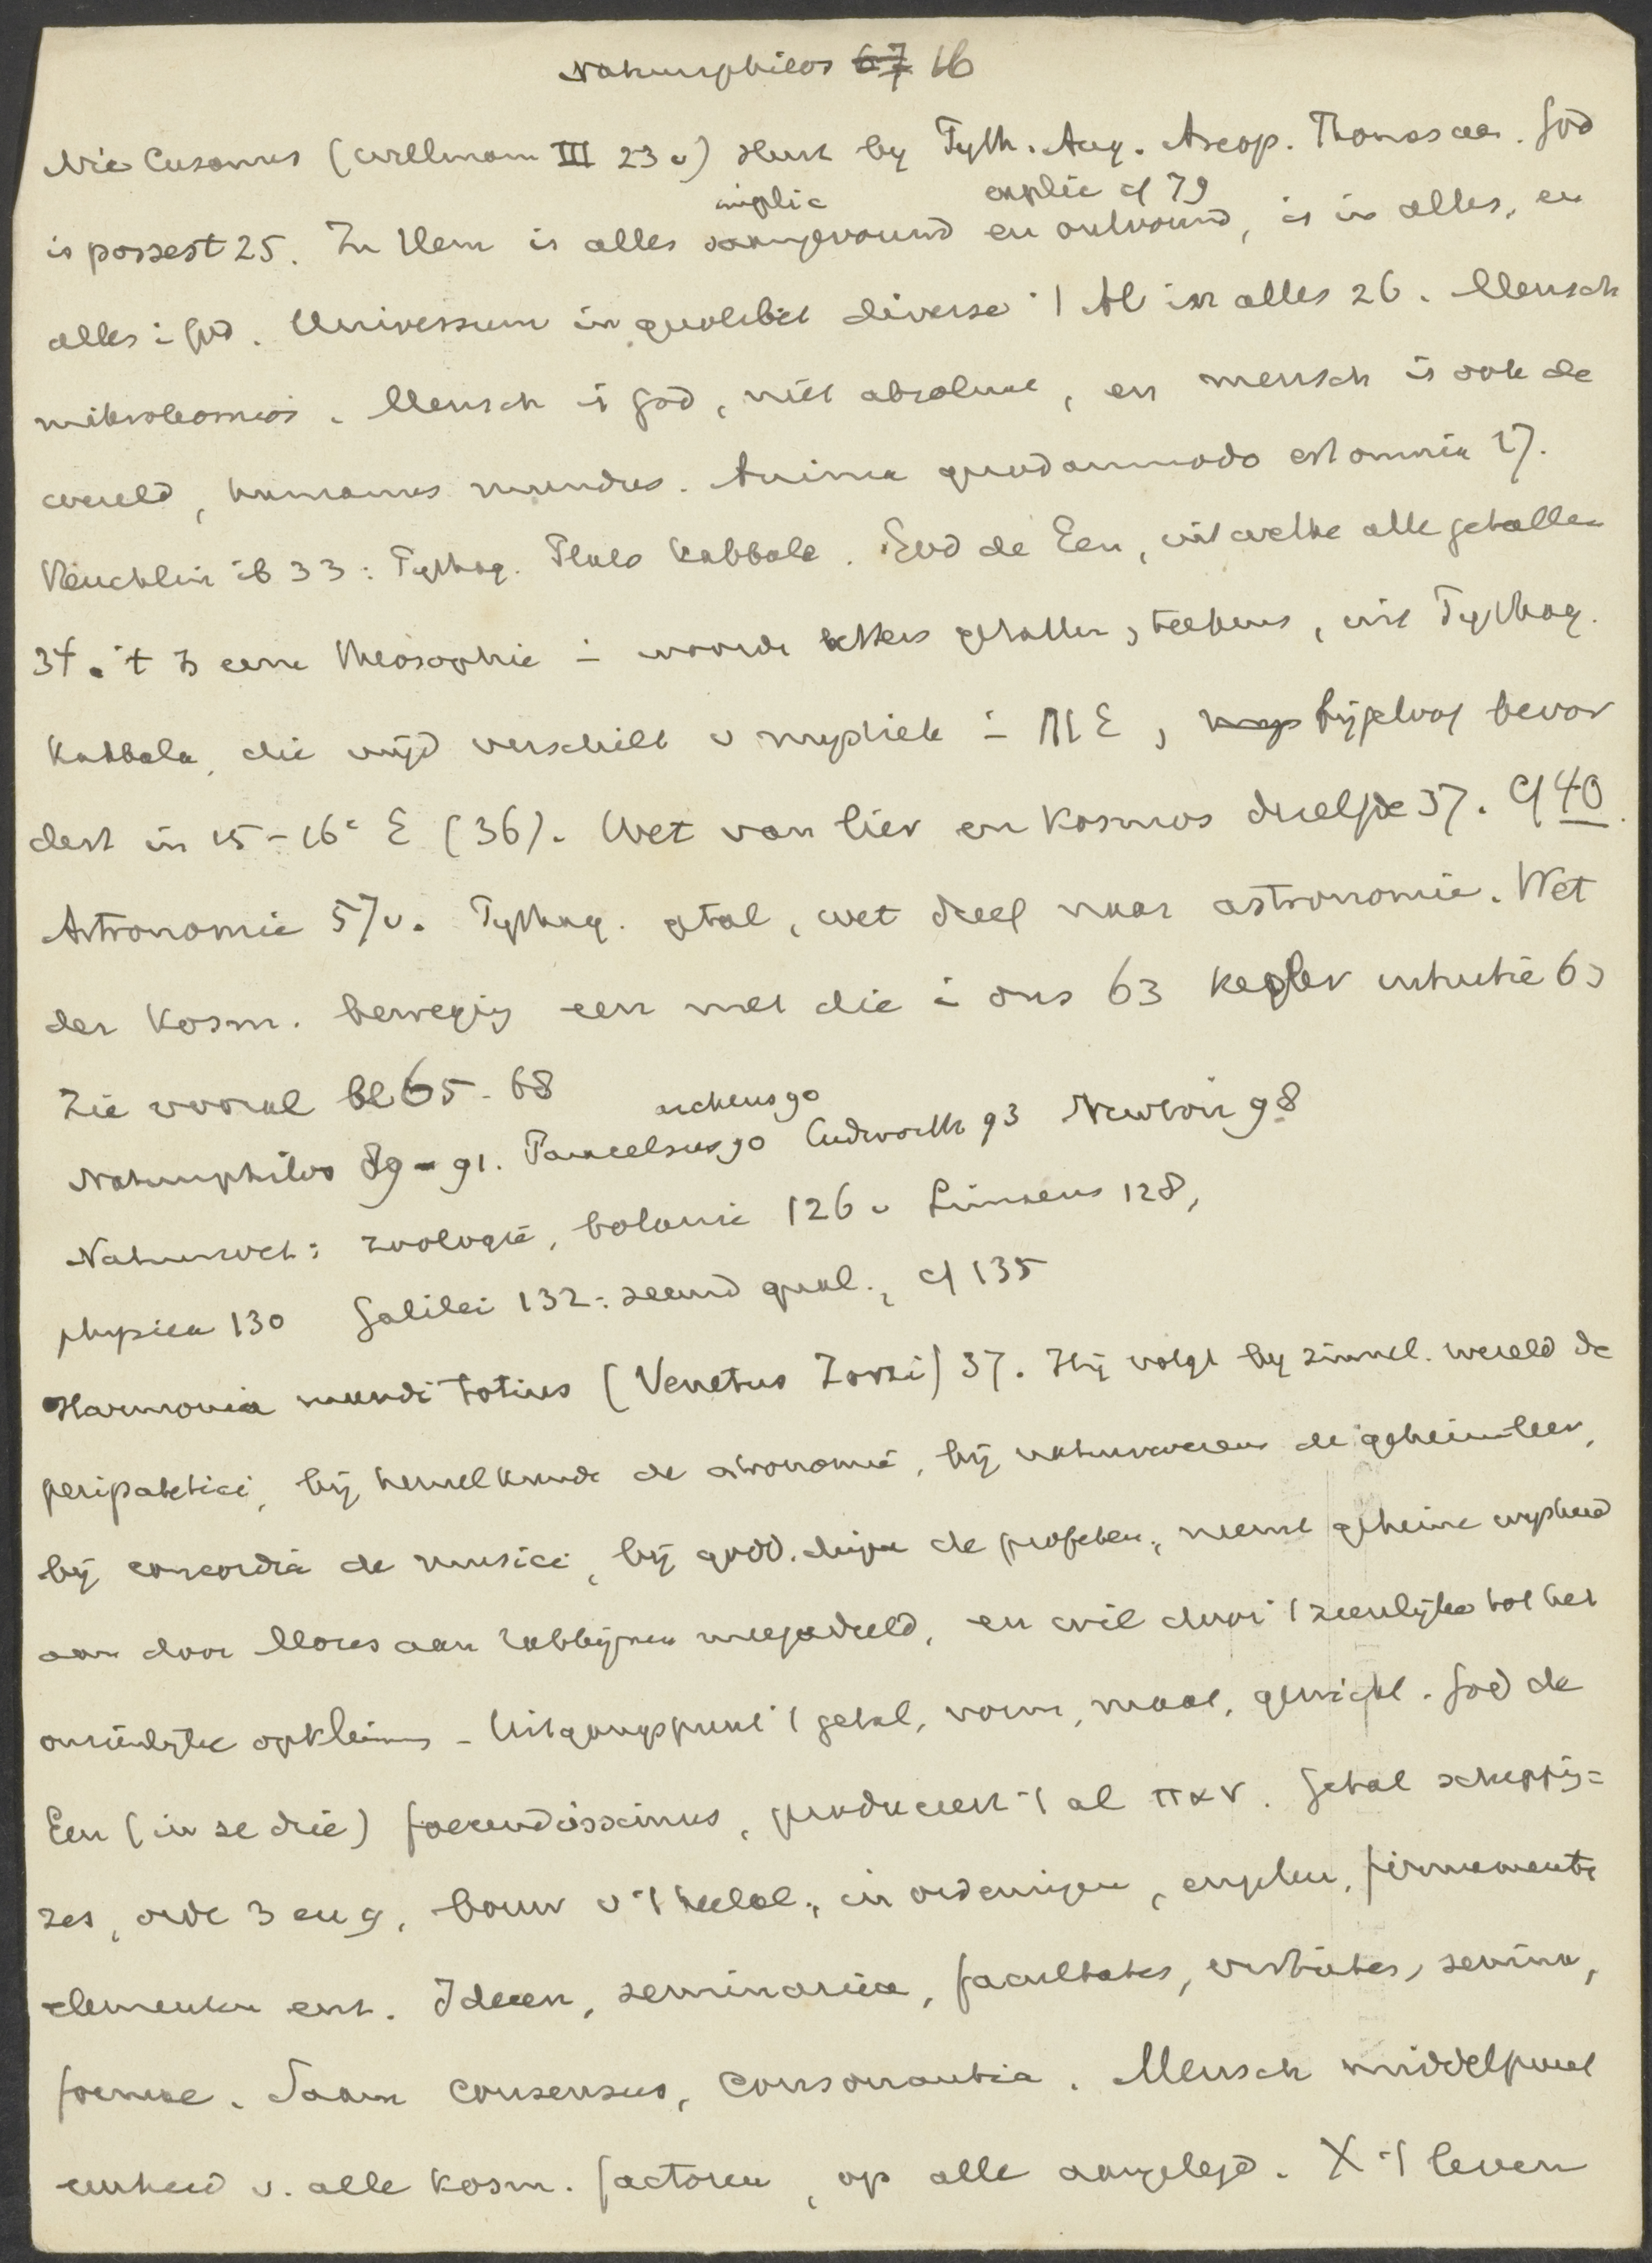 Naturphilos 67 16
Nic Cusanus (Willmann III 23 v) steunt by Pyth. Aug. Areop. Thomas aa. God
implic explic cf 79
is possest 25. In Hem is alles saamgevouwd en ontvouwd, is in alles, en
alles i God. Universum in quolibet diverse 't Al in alles 26. Mensch
mikrokosmos. Mensch is God, niet absoluut, en mensch is ook de
wereld, humanus mundus. Anima quodammodo est omnia 27.
Reuchlin ib 33: Pythag. Plato Kabbala. God de Een, uit welke alle getallen
34. 't Is eene theosophie i woorden letters getallen, teekens, uit Pythag.
Kabbala, die wijd verschilt v mystiek i ME, bijgeloof bevor
dert in 15-16e E (36). Wet van lier en kosmos dezelfde 37. Cf 40.
Astronomie 57v. Pythag. gtal, wet dreef naar astronomie. Wet
der Kosm. beweging een met die i ons 63 Kepler intuitie 63
Zie vooral bl 65-68
archeus 90
Naturphilos 89-91. Paracelsus 90 Cudworth 93 Newton 98
Natuurwet: zoologie, botanie 126 v Linnaeus 128,
physica 130 Galilei 132: secund qual., cf 135
Harmonia mundi totius (Venetus Zorzi) 37. Hij volgt by zinnel. wereld de
peripatetici, bij hemelkunde de astronomie, bij natuurwezens de geheimleer,
bij concordia de musici, bij godd. dingen de profeten, neemt geheime wijsheid
aan door Mozes aan rabbijnen meegedeeld, en wil door 't zienlijke tot het
onzienlijke opklimmen - Uitgangspunt 't getal, vorm, maat, gewicht. God de
Een (in se drie) foecundissimus, produceert 't al παν. Getal schepping =
zes, orde 3 en 9, bouw v 't heelal, in ordeningen, engelen, firmamenten
elementen enz. Ideeen, seminaria, facultates, virtutes, semina,
formae. Saam consensus, consonantia. Mensch middelpunt
eenheid v. alle kosm. factoren, op alle aangelegd. X 't leven